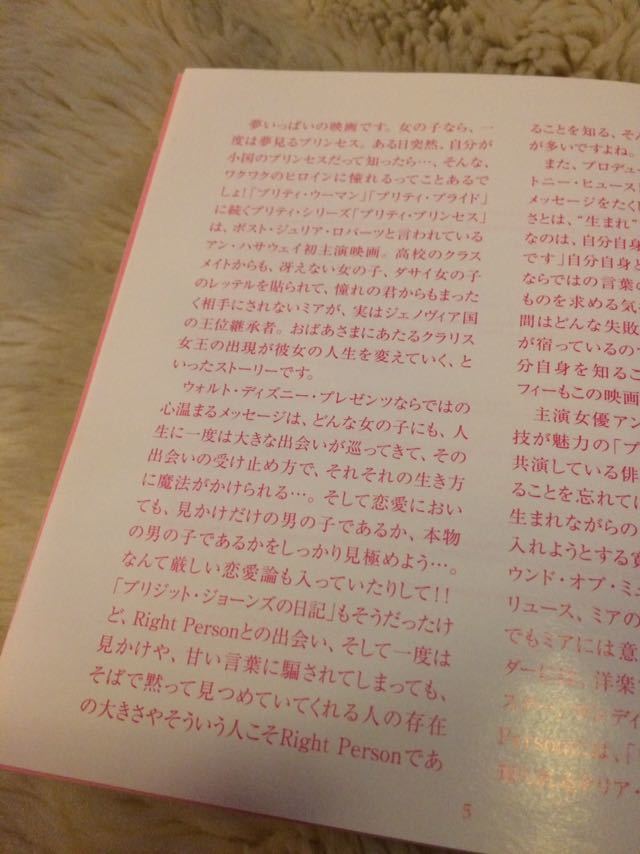 夢いっぱいの映画です。女の子なら、一
度は夢見るプリンセス。ある日突然、自分が
小国のプリンセスだって知ったら…、そんな、
ワクワクのヒロインに憧れるってことあるで
しょ!「プリティ・ウーマン」「プリティ・ブライド」
に続くプリティ・シリーズ「プリティ・プリンセス」
は、ポスト・ジュリア・ロバーツと言われている
アン・ハサウェイ初主演映画。高校のクラス
メイトからも、冴えない女の子、ダサイ女の子
のレッテルを貼られて、憧れの君からもまった
く相手にされないミアが、実はジェノヴィア国
の王位継承者。おばあさまにあたるクラリス
女王の出現が彼女の人生を変えていく、と
いったストーリーです。
ウォルト・ディズニー・プレゼンツならではの
心温まるメッセージは、どんな女の子にも、人
生に一度は大きな出会いが巡ってきて、その
出会いの受け止め方で、それぞれの生き方
に魔法がかけられる…。そして恋愛におい
ても、見かけだけの男の子であるか、本物
の男の子であるかをしっかり見極めよう…。
なんて厳しい恋愛論も入っていたりして!!
「ブリジット・ジョーンズの日記」もそうだったけ
ど、Right Personとの出会い、そして一度は
見かけや、甘い言葉に騙されてしまっても、
そばで黙って見つめていてくれる人の存在
の大きさやそういう人こそRight Personであ
ることを知る、そん
が多いですよね。
また、プロデュー
トニー・ヒュース
メッセージをたく
さとは、“生まれ”
なのは、自分自身
です」自分自身と
ならではの言葉の
ものを求める気
間はどんな失敗
が宿っているの
分自身を知るこ
フィーもこの映画
主演女優アン
技が魅力の「プ
共演している俳
ることを忘れては
生まれながらの
入れようとする寛
ウンド・オブ・ミュ
リュース、ミアの
でもミアには意
洋楽
5